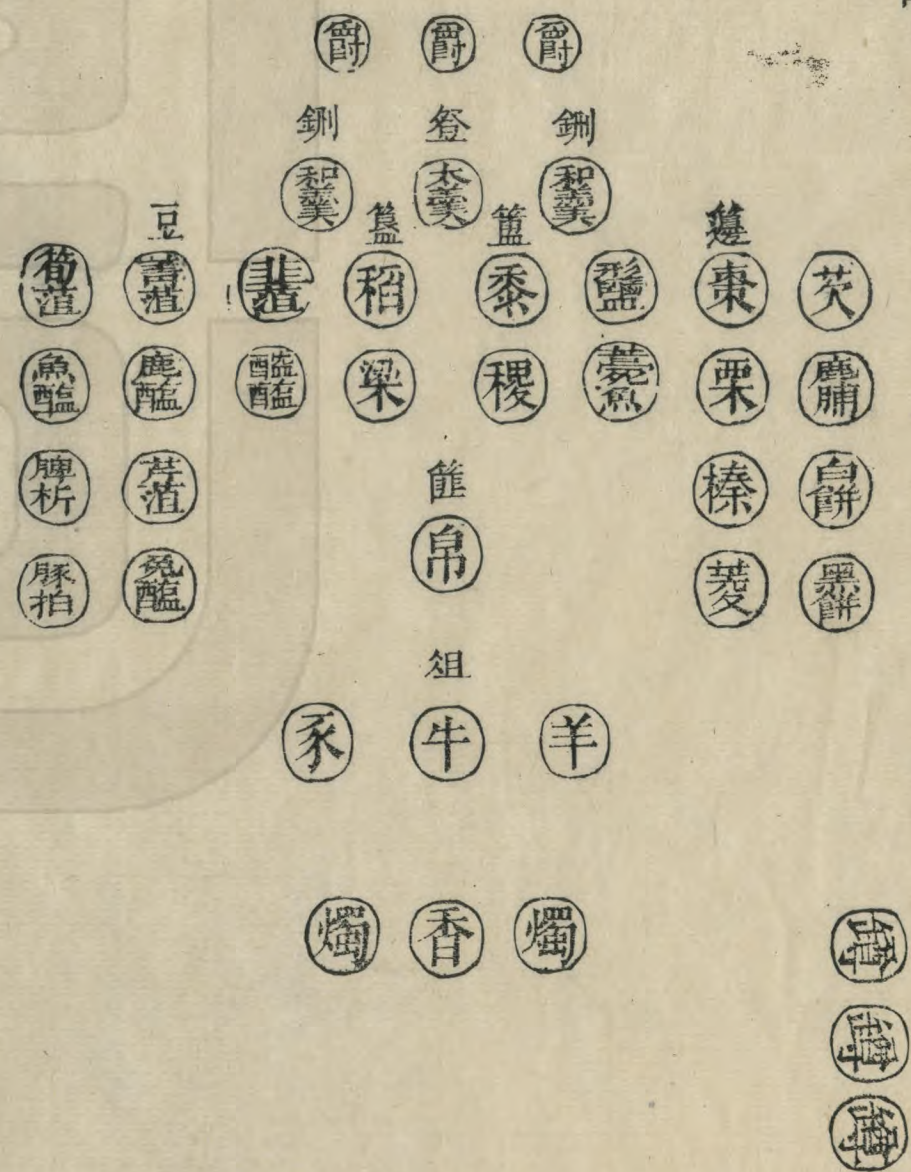 爵 爵 爵
鉶 登 鉶
和羹 太羹 和羹
豆 簋 簠 籩
筍菹 菁菹 韭菹 稻 黍 形鹽 棗 芡
魚醢 鹿醢 醓醢 粱 稷 薧魚 栗 鹿脯
脾析 芹菹 榛 白餅
篚
帛
豚拍 兔醢 菱 黑餅
俎
豕 牛 羊
燭 香 燭
罇
罇
罇